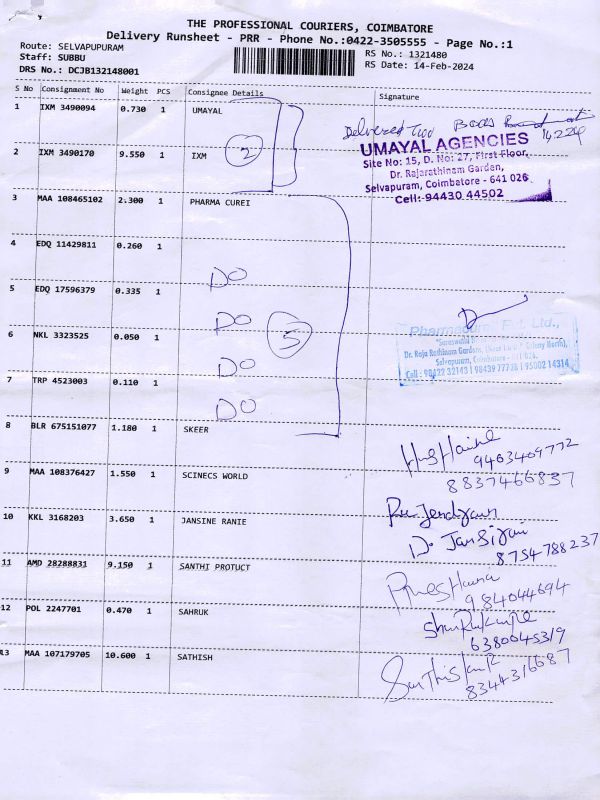 THE PROFESSIONAL COURIERS, COIMBATORE
Delivery Runsheet - PRR - Phone No.:0422-3505555 - Page No.:1
Route: SELVAPUPURAM
Staff: SUBBU
DRS No.: DCJB132148001
RS No.: 1321480
RS Date: 14-Feb-2024
S No Consignment No Weight PCS Consignee Details Signature
1 IXM 3490094 0.730 1 UMAYAL
Delivered Two Boxes
UMAYAL AGENCIES
Site No: 15, D. No: 27, First Floor,
Dr. Rajarathinam Garden,
Selvapuram, Coimbatore - 641 026
Cell:-94430 44502
2 IXM 3490170 9.550 1 IXM 2
3 MAA 108465102 2.300 1 PHARMA CUREI
4 EDQ 11429811 0.260 1
DO
5 EDQ 17596379 0.335 1
DO 5
Pvt. Ltd.,
Dr. Raja Rathinam Garden,
Selvapuram, Coimbatore
Cell : 98422 32143 | 98439 77728 | 95002 14314
6 NKL 3323525 0.050 1
DO
7 TRP 4523003 0.110 1
DO
8 BLR 675151077 1.180 1 SKEER
9463469772
8837466837
9 MAA 108376427 1.550 1 SCINECS WORLD
10 KKL 3168203 3.650 1 JANSINE RANIE
8754788237
11 AMD 28288831 9.150 1 SANTHI PROTUCT
984044694
12 POL 2247701 0.470 1 SAHRUK
6380045319
13 MAA 107179705 10.600 1 SATHISH
8344316687